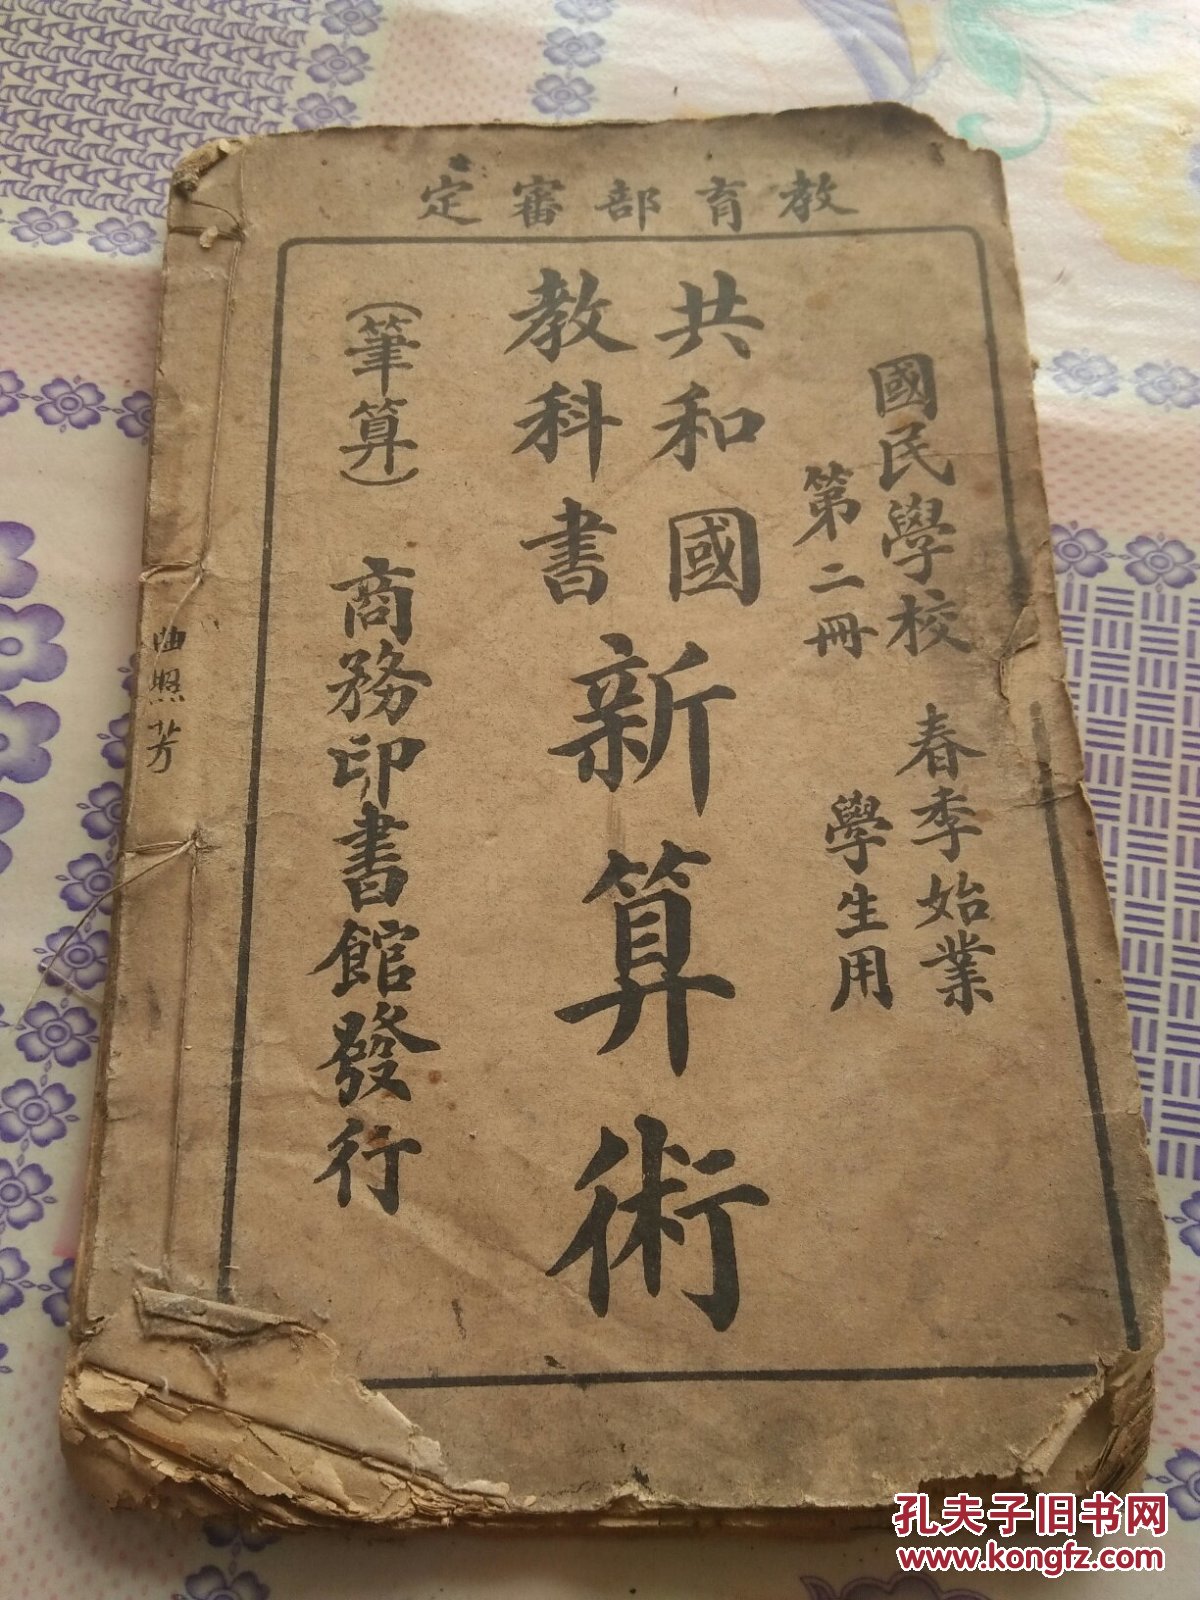 教育部審定
國民學校 春季始業
第二冊 學生用
共和國
教科書
新算術
(筆算)
商務印書館發行
曲照芳
孔夫子旧书网
www.kongfz.com